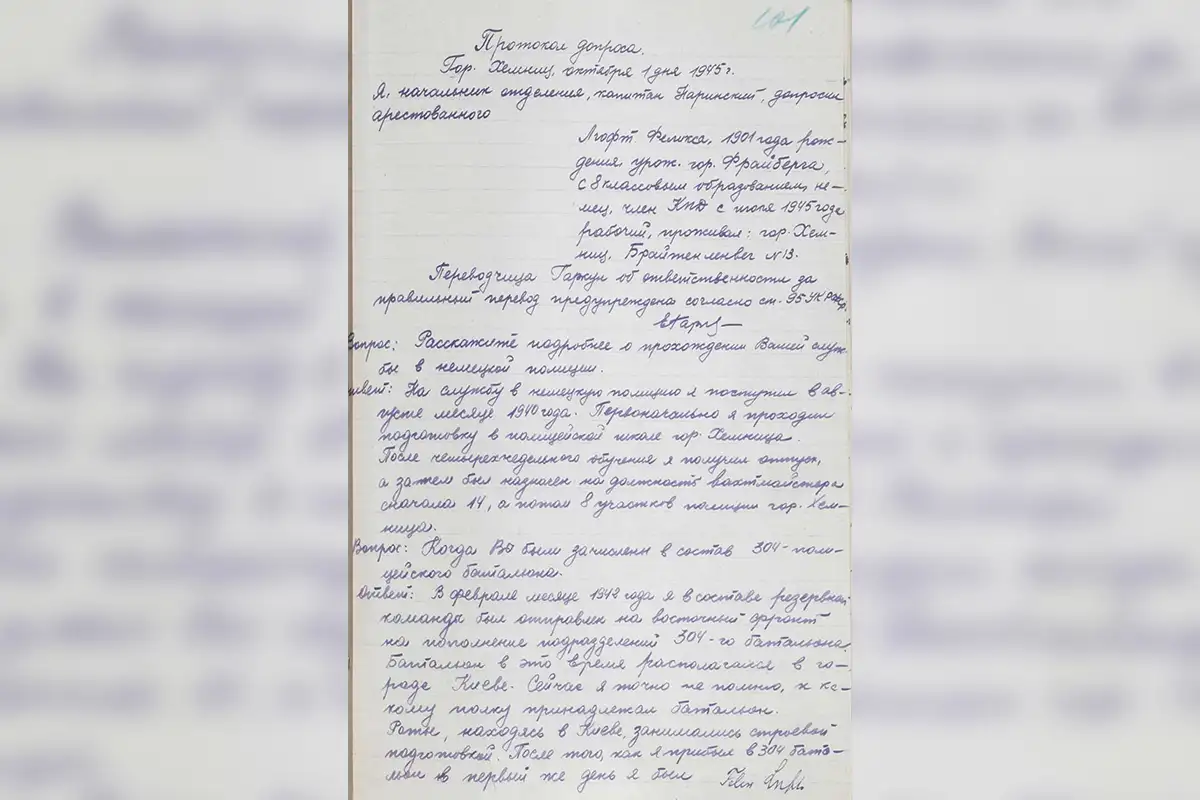 101
Протокол допроса.
Гор. Хемниц, октября 1 дня 1945 г.
Я, начальник отделения, капитан Наринский, допросил
арестованного
Феликса, 1901 года рож-
дения, урож. гор. Фрайберга,
с 8 классовым образованием, не-
мец, член КПД с июля 1945 года
рабочий, проживал: гор. Хем-
ниц, Брайтенленвег №13.
Переводчица Гаркун об ответственности за
правильный перевод предупреждена согласно ст. 95 УК РСФСР.
Вопрос: Расскажите подробнее о прохождении Вашей служ-
бы в немецкой полиции.
Ответ: На службу в немецкую полицию я поступил в ав-
густе месяце 1940 года. Первоначально я проходил
подготовку в полицейской школе гор. Хемница.
После четырехнедельного обучения я получил отпуск,
а затем был назначен на должность вахтмайстера
сначала 14, а потом 8 участков полиции гор. Хем-
ница.
Вопрос: Когда Вы были зачислены в состав 304-поли-
цейского батальона.
Ответ: В феврале месяце 1942 года я в составе резервной
команды был отправлен на восточный фронт
на пополнение подразделений 304-го батальона.
Батальон в это время располагался в го-
роде Киеве. Сейчас я точно не помню, к ка-
кому полку принадлежал батальон.
Роты, находясь в Киеве, занимались строевой
подготовкой. После того, как я прибыл в 304 бата-
льон в первый же день я был